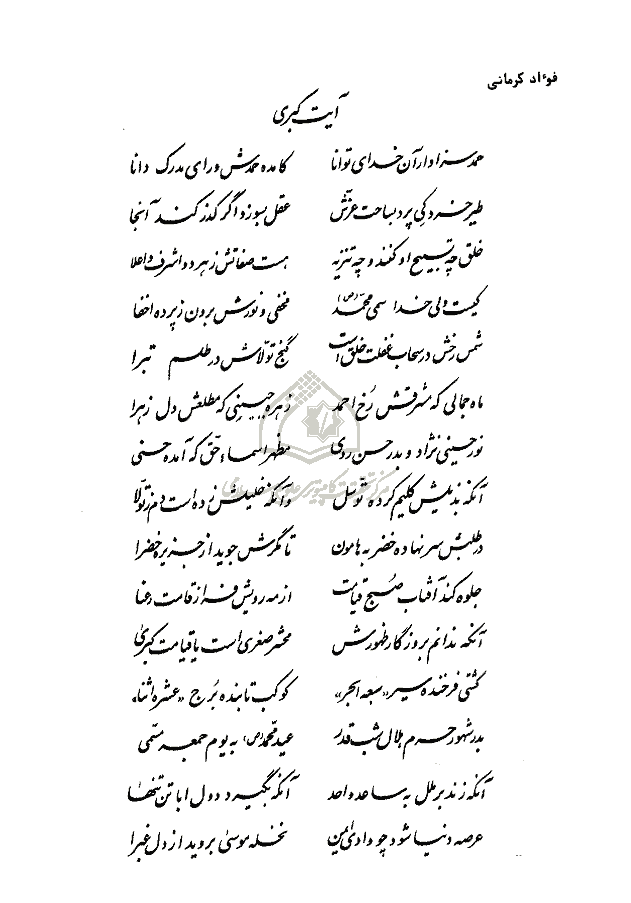 فوءاد کرمانی
آیت کبری
حمد سزاوار آن خدای توانا کامده حمدش ورای مدرک دانا
طیر خرد کی پرد بساحت عزّش عقل بسوزد اگر گذر کند آنجا
خلق چه تسبیح او کنند و چه تنزیه هست صفاتش زهر دو اشرف و اعلا
کیست ولی خدا سمی محمّد (ص) مخفی و نورش برون ز پرده اخفا
شمس رخش در سحاب غفلت خلق است گنج تولّاش در طلسم تبرا
ماه جمالی که مشرقش رُخ احمد زهره جبینی که مطلعش دل زهرا
نور حسینی نژاد و بدر حسن روی مظهر اسماء حق که آمده حسنی
آنکه بذیلش کلیم کرده توسّل وآنکه خلیلش زده است دم ز تولّا
در طلبش سر نهاده خضر به هامون تا مگرش جوید از جزیره خضرا
جلوه کند آفتاب صبح قیامت از مه رویش فراز قامت رعنا
آنکه ندانم بروزگار ظهورش محشر صغری است یا قیامت کبری
کشتی فرخنده سیر «سبعه ابحر» کوکب تابنده بُرج «عشره اثنا»
بدر شهور حرم هلال شب قدر عید محمّد (ص) به یوم جمعه مسمّی
آنکه زند بر ملل به ساعد واحد آنکه بگیرد دول ابا تن تنها
عرصه دنیا شود چو وادی ایمن نخله موسی بروید از دل غبرا